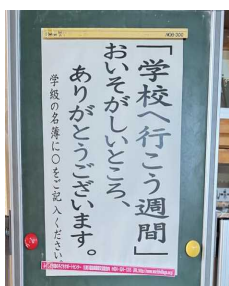 「学校へ行こう週間」
おいそがしいところ、
ありがとうございます。
学級の名簿に○をご記入ください